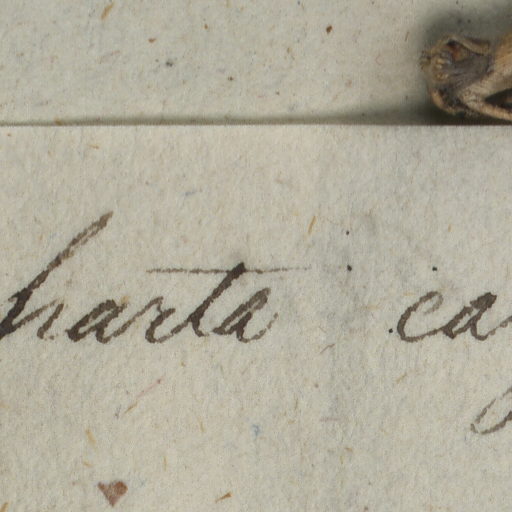 harta ca